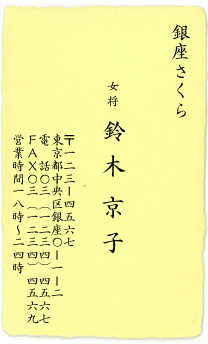 銀座さくら
女将
鈴木京子
〒一二三ー四五六七
東京都中央区銀座〇ー一ー二
電話〇三（一二三四）四五六七
ＦＡＸ〇三（一二三四）四五六九
営業時間一八時～二四時